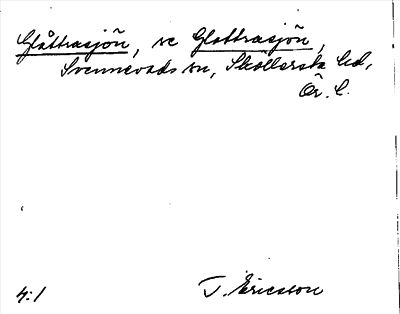 Glåttrasjön, se Glottrasjön,
Svennevads sn, Skollersta hd,
Ör. l.
4:1 T. Ericsson